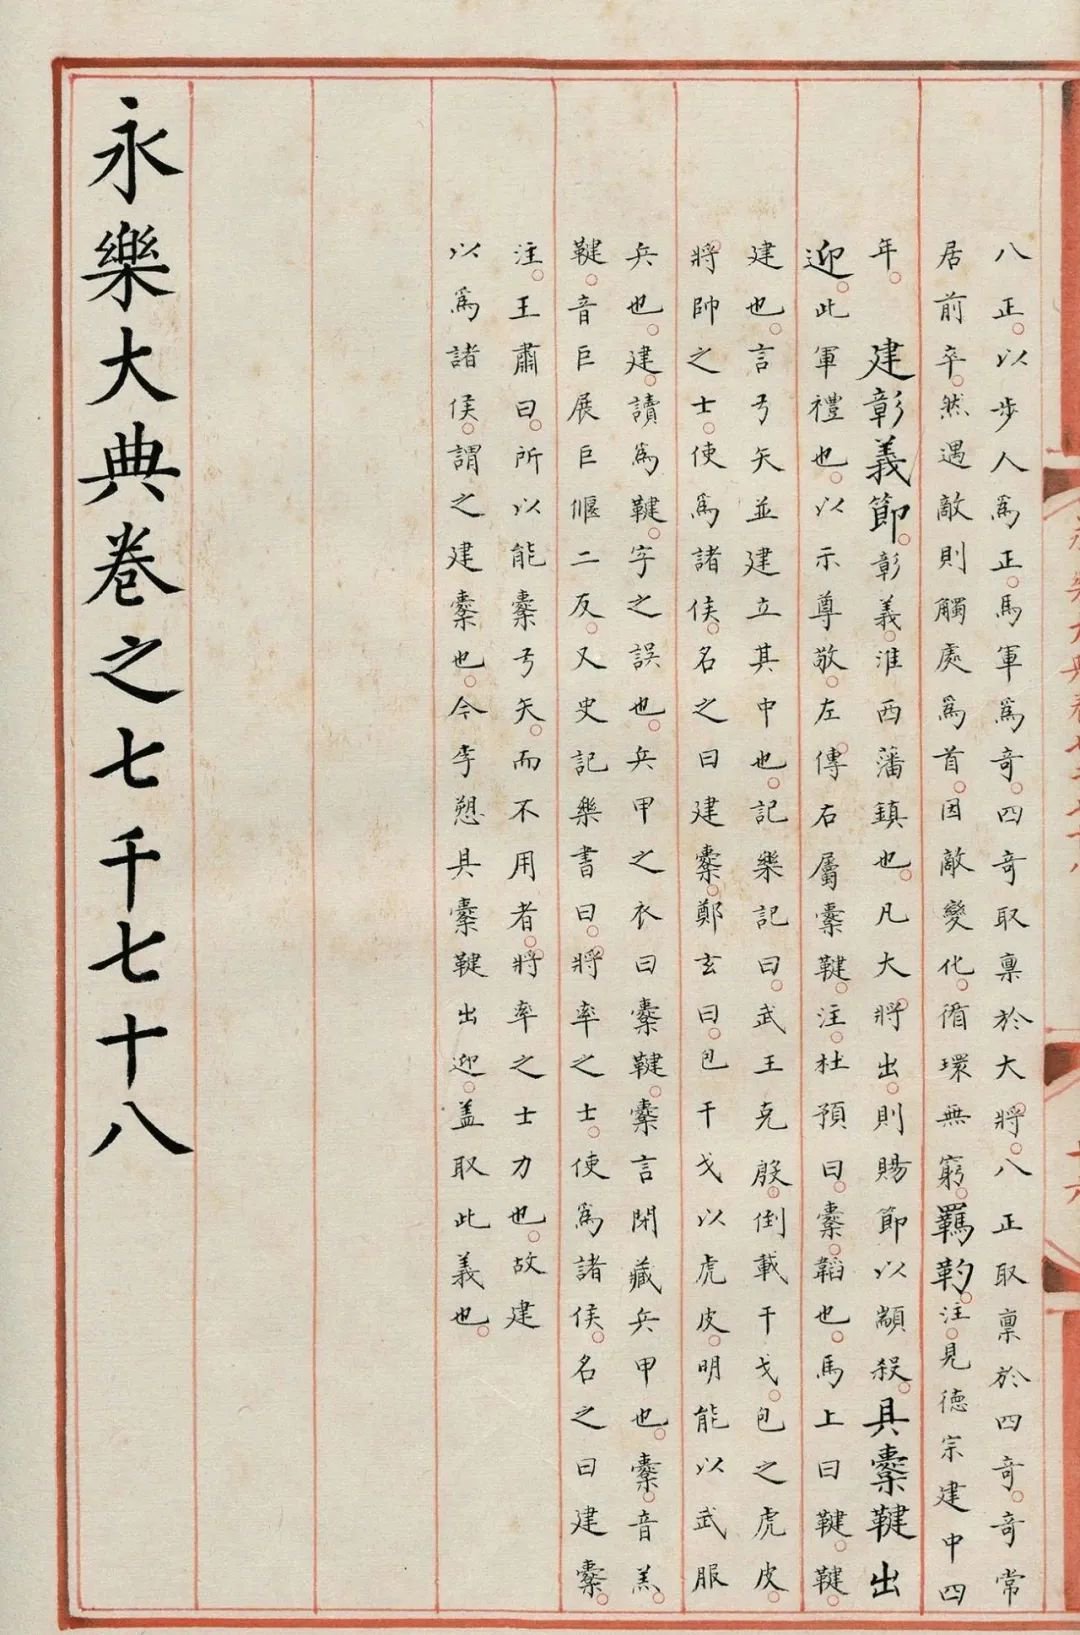 八正。以步人爲正。馬軍爲奇。四奇取稟於大將。八正取稟於四奇。奇常
居前卒。然遇敵則觸處爲首。因敵變化。循環無窮。羈靮。注。見德宗建中四
年。建彰義節。彰義。淮西藩鎮也。凡大將出。則賜節以顓殺。具櫜鞬出
迎。此軍禮也。以示尊敬。左傳右屬櫜鞬。注。杜預曰。櫜。韜也。馬上曰鞬。鞬。
建也。言弓矢並建立其中也。記樂記曰。武王克殷。倒載干戈。包之虎皮。
將帥之士。使爲諸侯。名之曰建櫜。鄭玄曰。包干戈以虎皮。明能以武服
兵也。建。讀爲鞬。字之誤也。兵甲之衣曰櫜鞬。櫜言閉藏兵甲也。櫜。音羔。
鞬。音巨展巨偃二反。又史記樂書曰。將率之士。使爲諸侯。名之曰建櫜。
注。王肅曰。所以能櫜弓矢。而不用者。將率之士力也。故建
以爲諸侯。謂之建櫜也。今李愬具櫜鞬出迎。盖取此義也。
永樂大典卷之七千七十八